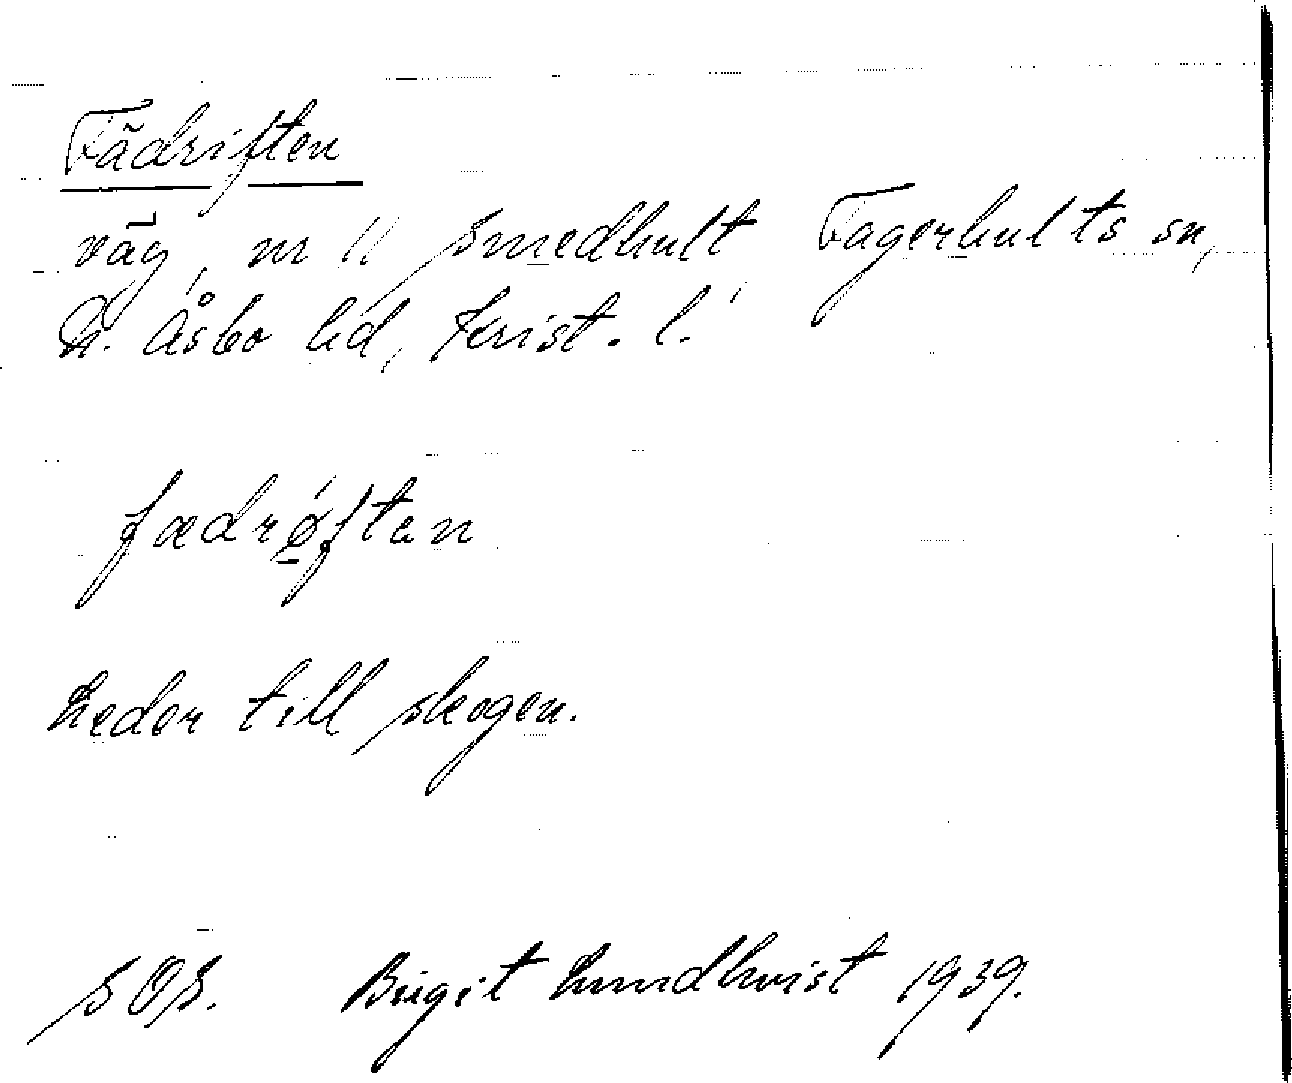 Fädriften
väg, nr 11 Smedhult, Fagerhults sn,
N. Åsbo hd, Krist. l.
fædrǿ̱ften
Leder till skogen.
SOS. Birgit Lundkvist 1939.